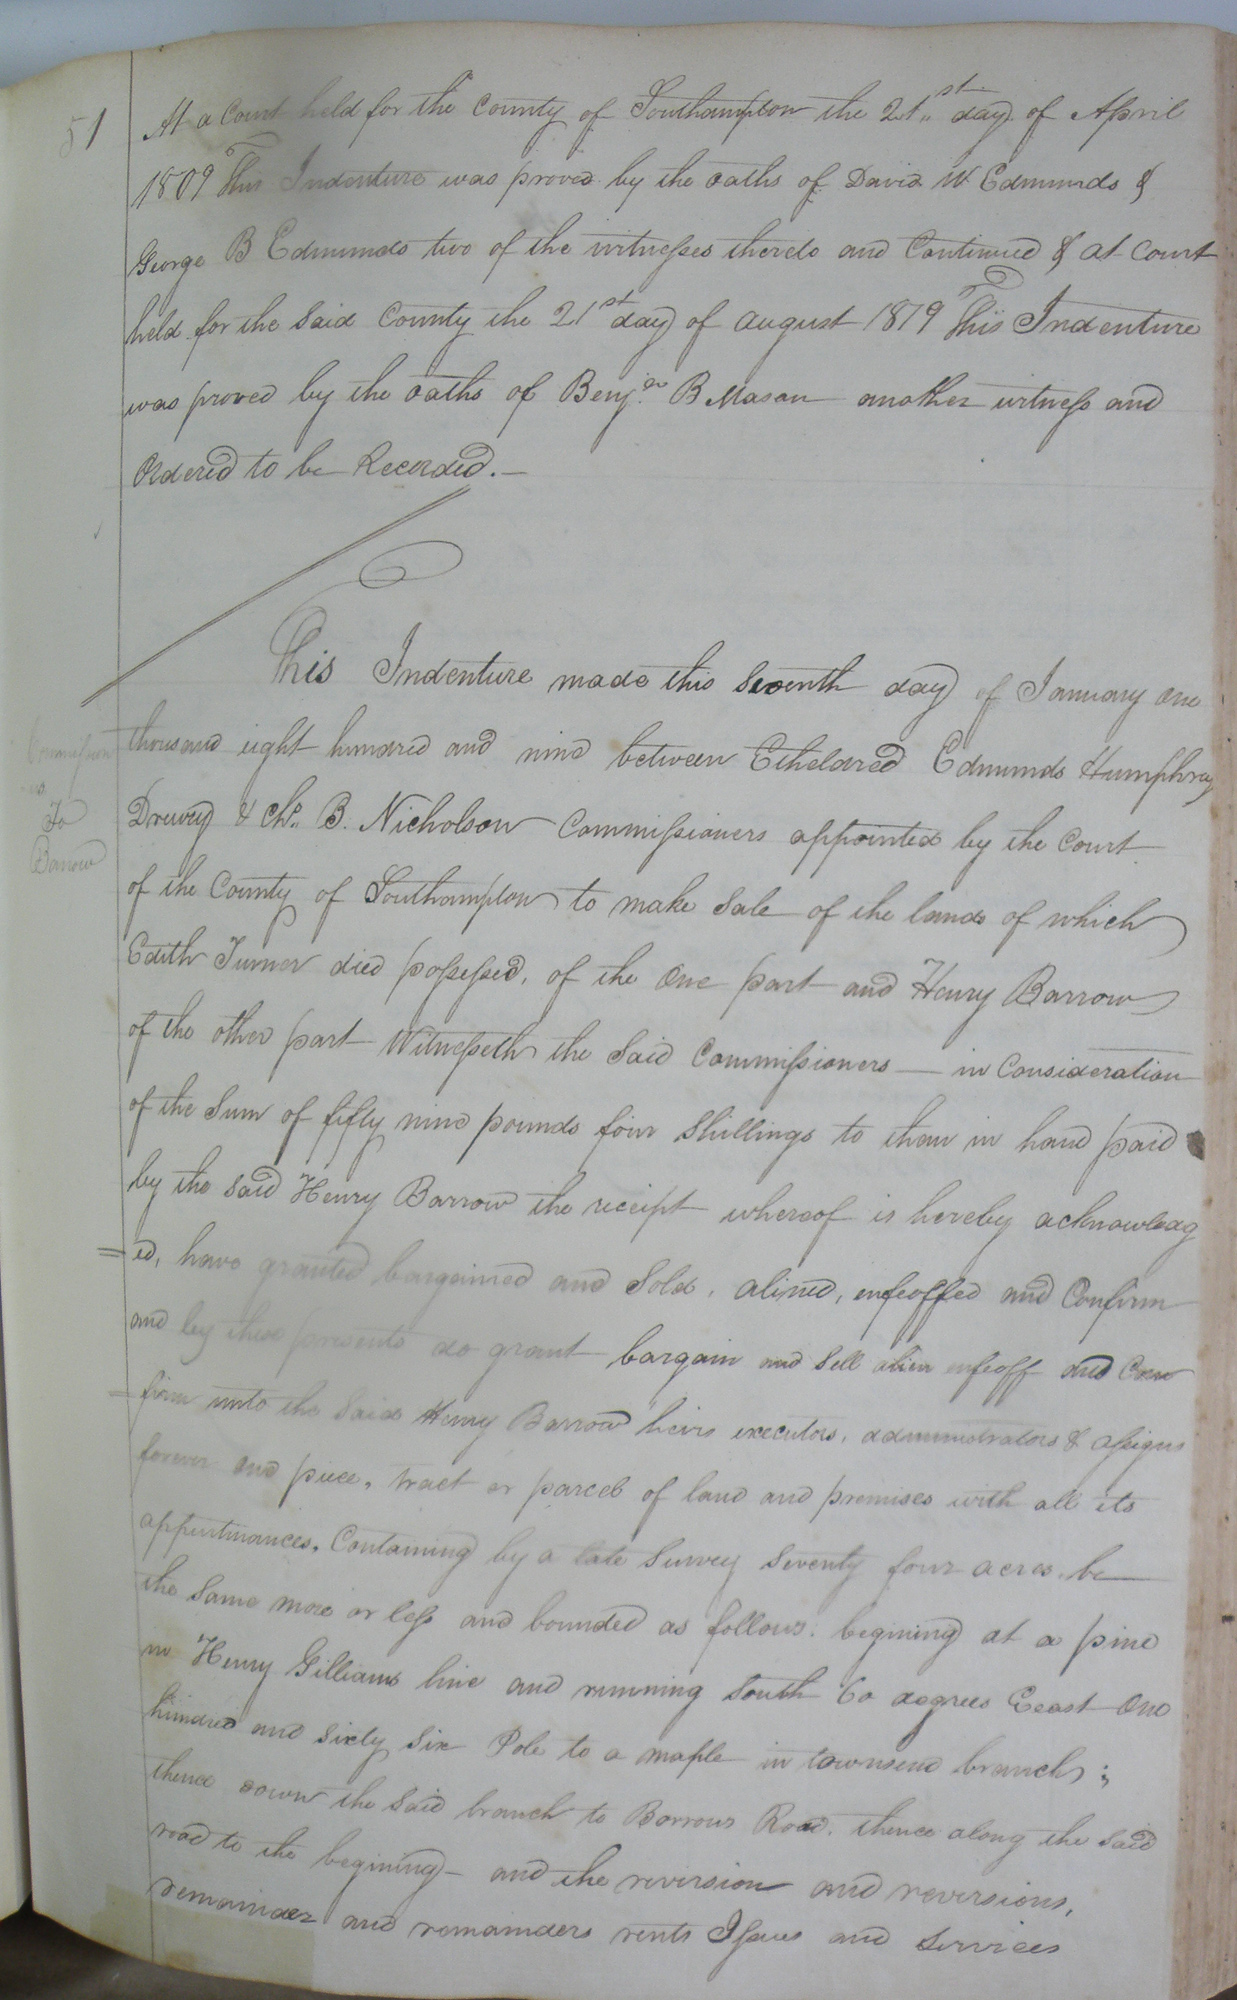 51
At a Court held for the County of Southampton the 21st day of April
1809 This Indenture was proved by the oaths of David W Edmunds &
George B Edmunds two of the witnesses thereto and Continued & at Court
held for the said County the 21st day of august 1819 This Indenture
was proved by the oaths of Benjn B Mason another witness and
Ordered to be Recorded.
This Indenture made this Seventh day of January one
thousand eight hundred and nine between Etheldred Edmunds Humphrey
Drewry & Chs. B. Nicholson Commissioners appointed by the Court
of the County of Southampton to make Sale of the lands of which
Edith Turner died possessed, of the One part and Henry Barrow
of the other part Witnesseth the Said Commissioners — in Consideration
of the Sum of fifty nine pounds four Shillings to them in hand paid
by the said Henry Barrow the receipt whereof is hereby acknowledg
=ed, have granted bargained and Sold, alined, enfeoffed and Confirm
and by these presents do grant bargain and Sell alien enfeoff and Con
=firm unto the Said Henry Barrow heirs executors, administrators & assigns
forever one piece, tract or parcel of land and premises with all its
appurtinances, Containing by a late Survey Seventy four acres be
the Same more or less and bounded as follows: begining at a pine
in Henry Gilliams line and running South 60 degrees Eeast One
hundred and Sixty Six Pole to a maple in townsend branch;
thence down the Said branch to Barrows Road, thence along the Said
road to the begining — and the reversion and reversions,
remainder and remainders rents Issues and Services
Commission
ers
To
Barrow